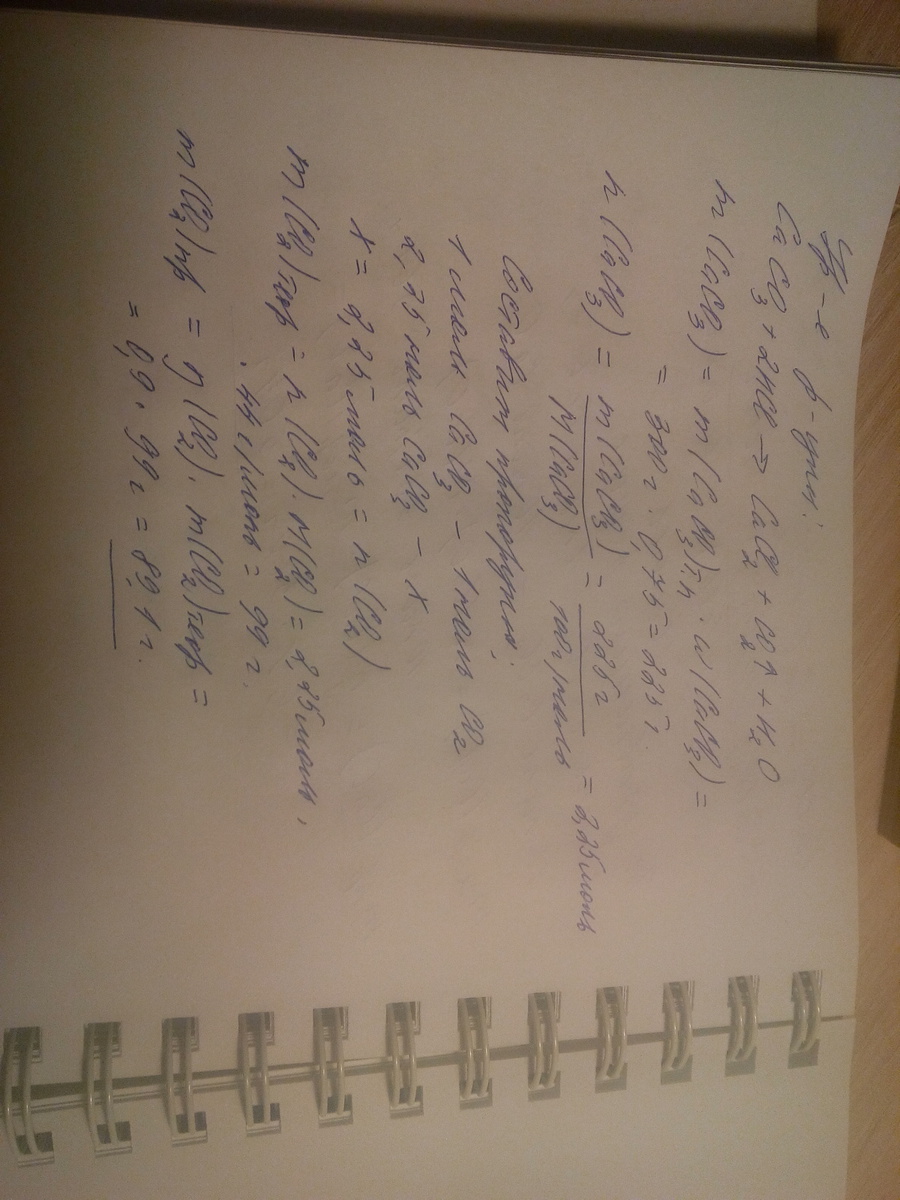 Ур-е р-ции:
CaCO3 + 2HCl → CaCl2 + CO2↑ + H2O
m(CaCO3) = m(CaCO3)т.п. · w(CaCO3) =
= 300г. · 0,75 = 225г.
n(CaCO3) = m(CaCO3) / M(CaCO3) = 225г / 100г/моль = 2,25моль
Составим пропорцию:
1 моль CaCO3 – 1 моль CO2
2,25 моль CaCO3 – x
x = 2,25 моль = n(CO2)
m(CO2)теор = n(CO2) · M(CO2) = 2,25моль ·
· 44г/моль = 99г.
m(CO2)пр = η(CO2) · m(CO2)теор =
= 0,9 · 99г = 89,1г.